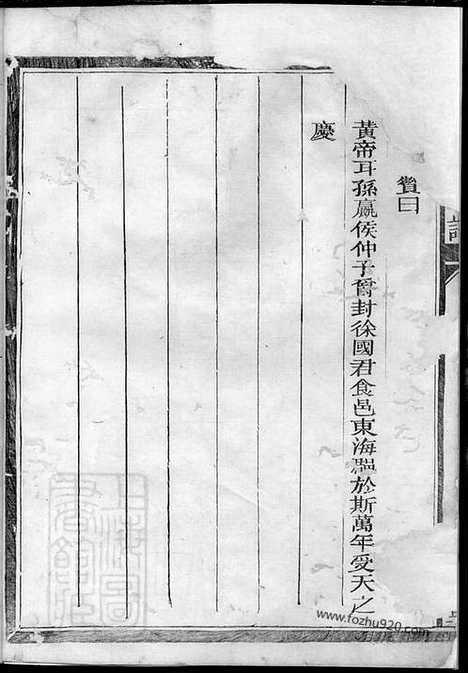 贊曰
黃帝耳孫嬴侯仲子爵封徐國君食邑東海郡於斯萬年受天之
慶
www.fozhu920.com